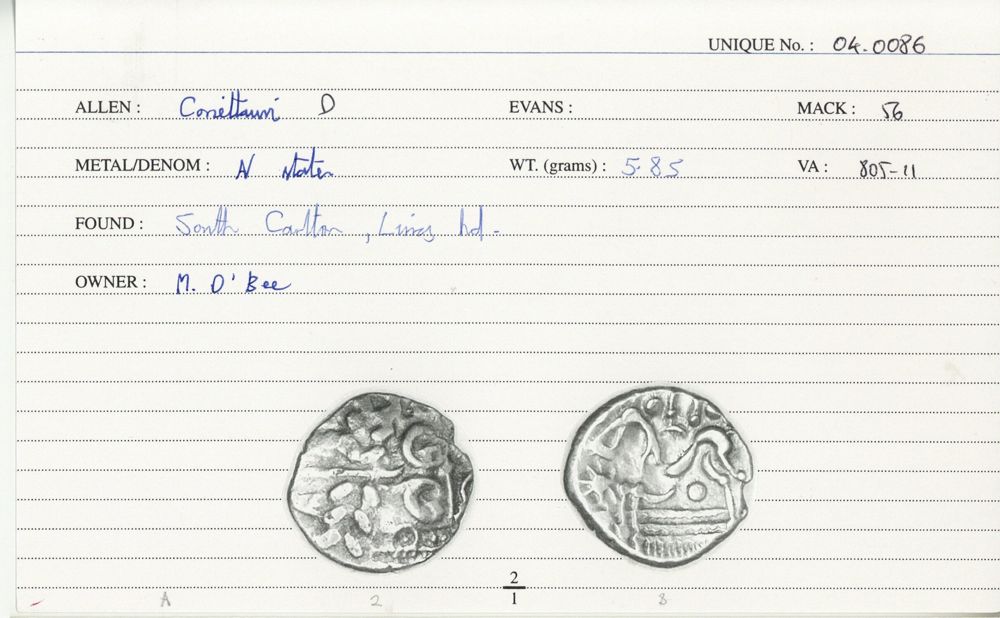 UNIQUE No. : 04.0086
ALLEN : Corieltauvi D EVANS : MACK : 56
METAL/DENOM : N stater WT. (grams) : 5.85 VA : 805-11
FOUND : South Carlton, Lincs
OWNER : M. O'Bee
2
1
A 2 8